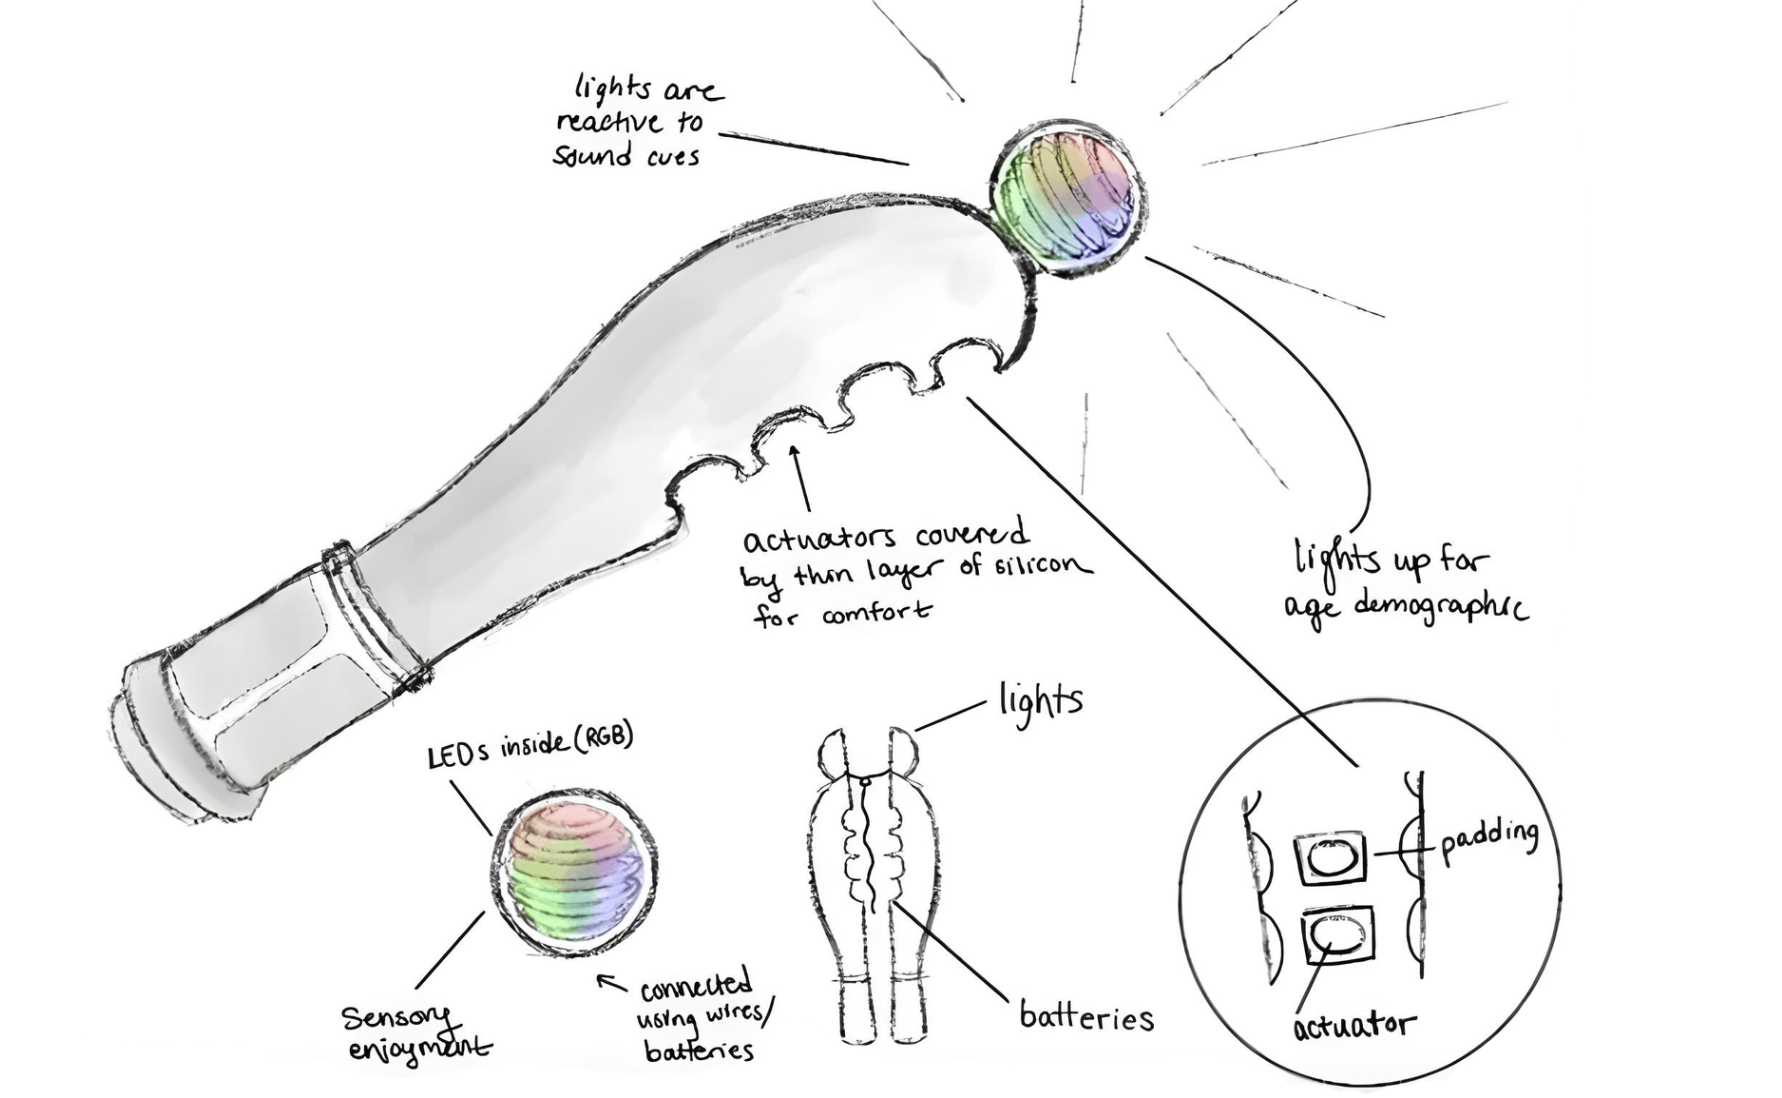 lights are
reactive to
sound cues
actuators covered
by thin layer of silicon
for comfort
lights up for
age demographic
LEDs inside (RGB)
sensory
enjoyment
connected
using wires/
batteries
lights
batteries
padding
actuator